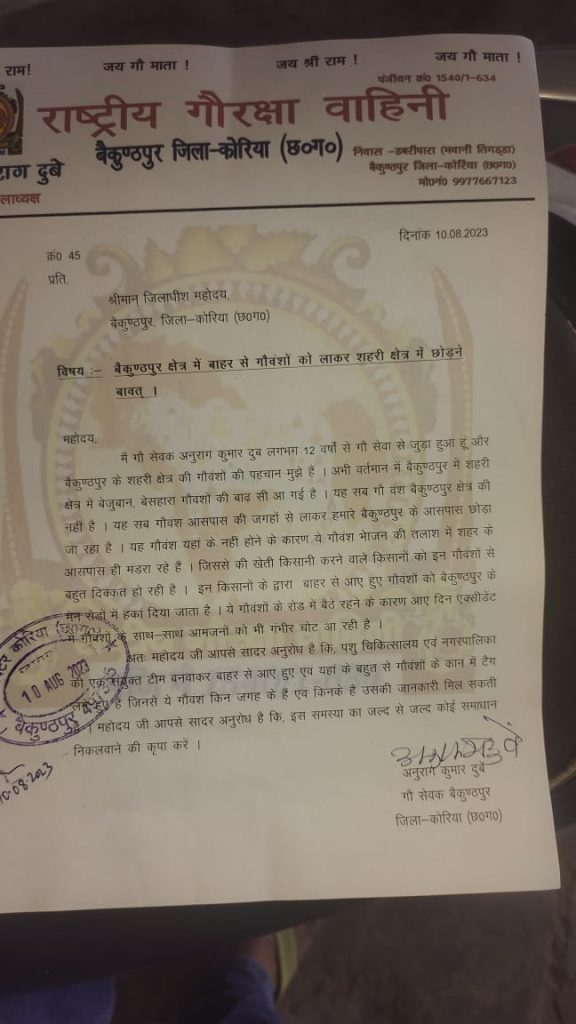 राम!
जय गौ माता !
जय श्री राम !
जय गौ माता !
पंजीयन क्र0 1540/1-634
राष्ट्रीय गौरक्षा वाहिनी
बैकुण्ठपुर जिला-कोरिया (छ0ग0)
निवास -डबरीपारा (भवानी तिगड्डा)
बैकुण्ठपुर जिला-कोरिया (छ0ग0)
मो0नं0 9977667123
राग दुबे
लाध्यक्ष
दिनांक 10.08.2023
क्र0 45
प्रति,
श्रीमान् जिलाधीश महोदय,
बैकुण्ठपुर, जिला-कोरिया (छ0ग0)
विषय :- बैकुण्ठपुर क्षेत्र में बाहर से गौवंशों को लाकर शहरी क्षेत्र में छोड़ने
बावत् ।
महोदय,
मैं गौ सेवक अनुराग कुमार दुब लगभग 12 वर्षो से गौ सेवा से जुड़ा हुआ हूं और
बैकुण्ठपुर के शहरी क्षेत्र की गौवंशों की पहचान मुझे हैं । अभी वर्तमान में बैकुण्ठपुर में शहरी
क्षेत्र में बेजुबान, बेसहारा गौवंशों की बाढ़ सी आ गई है । यह सब गौ वंश बैकुण्ठपुर क्षेत्र की
नहीं है । यह सब गौवंश आसपास की जगहों से लाकर हमारे बैकुण्ठपुर के आसपास छोडा
जा रहा है । यह गौवंश यहां के नहीं होने के कारण ये गौवंश भोजन की तलाश में शहर के
आसपास ही मंडरा रहे हैं । जिससे की खेती किसानी करने वाले किसानों को इन गौवंशों से
बहुत दिक्कत हो रही है । इन किसानों के द्वारा बाहर से आए हुए गौवंशों को बैकुण्ठपुर के
मेन रोडों में हकां दिया जाता है । ये गौवंशों के रोड में बैठे रहने के कारण आए दिन एक्सीडेंट
में गौवंशों के साथ-साथ आमजनों को भी गंभीर चोट आ रही है ।
अतः महोदय जी आपसे सादर अनुरोध है कि, पशु चिकित्सालय एवं नगरपालिका
की एक संयुक्त टीम बनवाकर बाहर से आए हुए एवं यहां के बहुत से गौवंशों के कान में टैग
लगे हुए है जिनसे ये गौवंश किन जगह के है एवं किनके है उसकी जानकारी मिल सकती
है । महोदय जी आपसे सादर अनुरोध है कि, इस समस्या का जल्द से जल्द कोई समाधान
निकलवाने की कृपा करें ।
टर कोरिया (छ0ग0)
10 AUG 2023
बैकुण्ठपुर
10-08-2023
अनुराग कुमार दुबे
गौ सेवक बैकुण्ठपुर
जिला-कोरिया (छ0ग0)